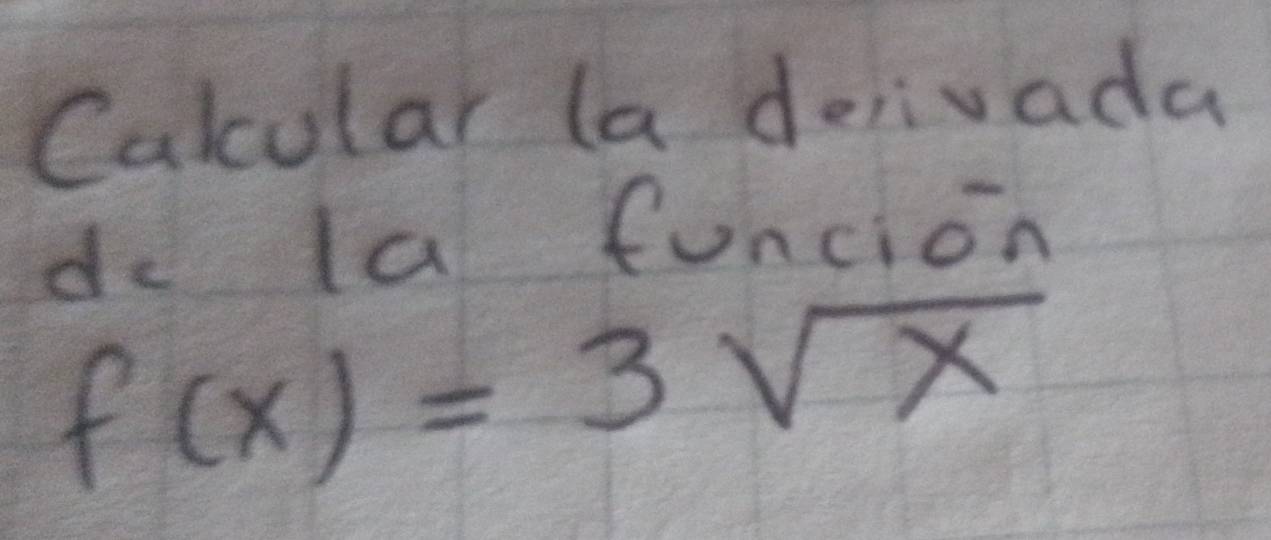 Calcular la derivada
de la función
f(x) = 3√x